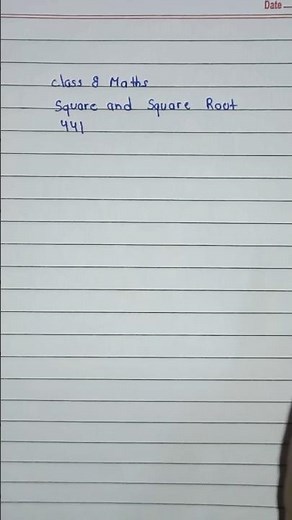 Date
class 8 Maths
Square and Square Root
441